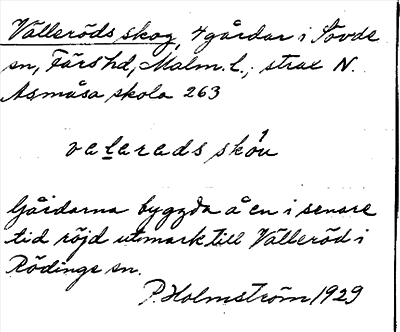 Välleröds skog, 4 gårdar i Sövde
sn, Färs hd, Malm. l.; strax N.
Asmåsa skola 263
valerads skóu
Gårdarna byggda å en i senare
tid röjd utmark till Välleröd i
Rödinge sn.
P. Holmström 1929